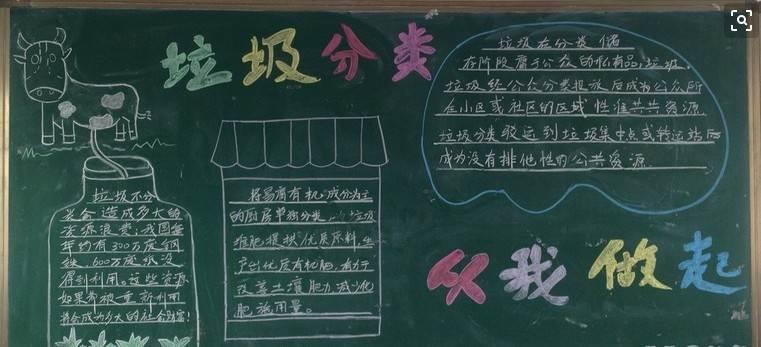 垃圾分类
垃圾在分类储
存阶段属于公众的私有品,垃圾
垃圾经公众分类投放后成为公众所
在小区或社区的区域性准共共资源
垃圾分类驳运到垃圾集中点或转运站后
成为没有排他性的公共资源
垃圾不分
类会造成多大的
资源浪费:我国每
年约有300万废钢
铁,600万废纸没
得到利用。这些资源
如果都被重新利用
将会成为多大的社会财富!
将易腐有机成分为主
的厨房单独分类,垃圾
堆肥提供优质原料,生
产出优质有机肥,有利于
改善土壤肥力,减少化
肥施用量。
从我做起